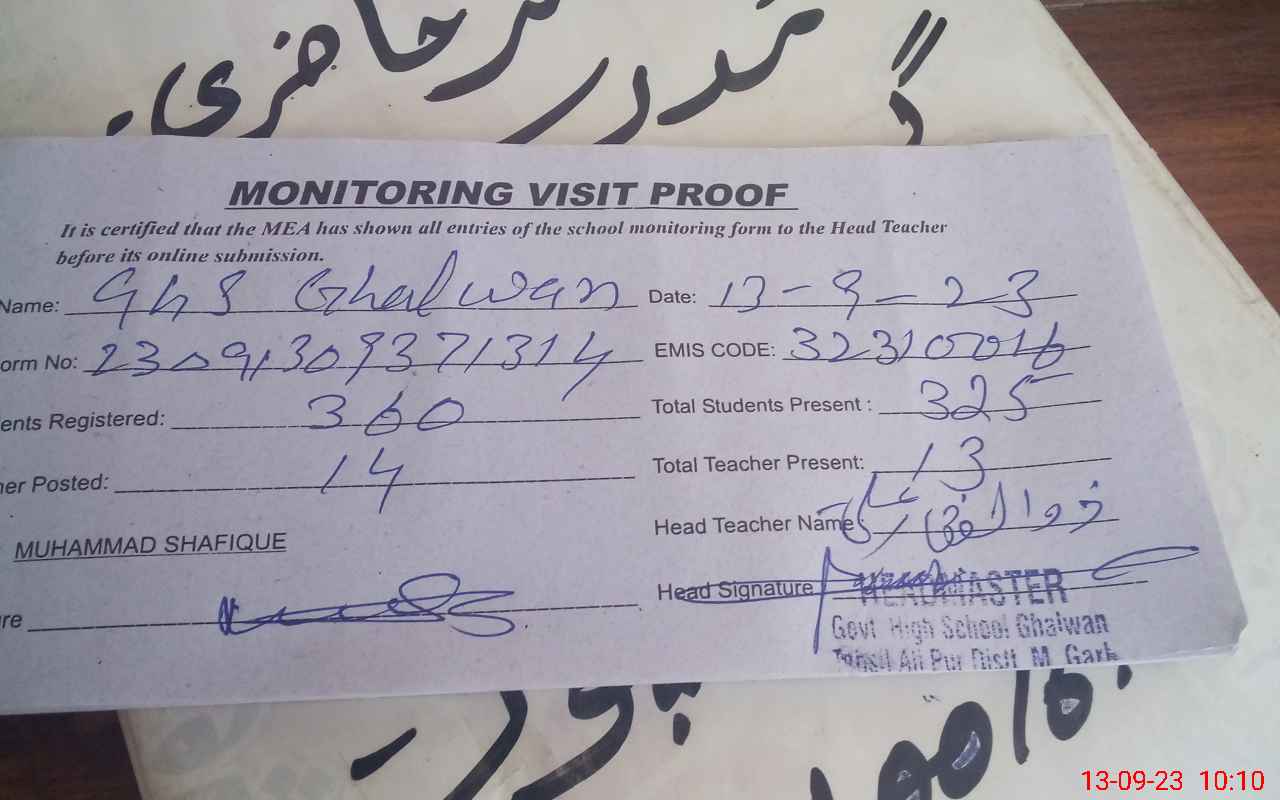 حاضری
MONITORING VISIT PROOF
It is certified that the MEA has shown all entries of the school monitoring form to the Head Teacher
before its online submission.
Name: GHS Ghalwan Date: 13-9-23
orm No: 23091309371314 EMIS CODE: 32310016
ents Registered: 360 Total Students Present : 325
er Posted: 14 Total Teacher Present: 13
Head Teacher Name
MUHAMMAD SHAFIQUE
Head Signature
re
HEADMASTER
Govt High School Ghalwan
Tehsil Ali Pur Distt M. Garh
13-09-23 10:10